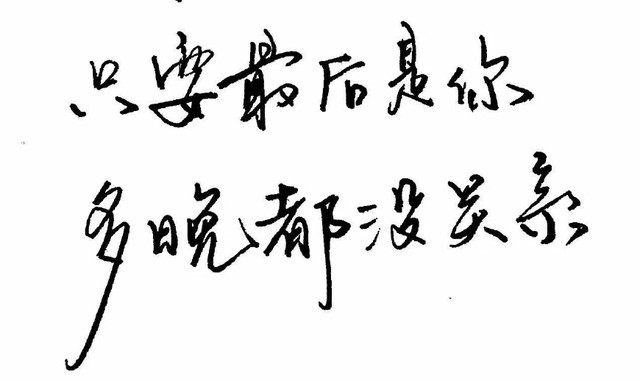 只要最后是你
多晚都没关系